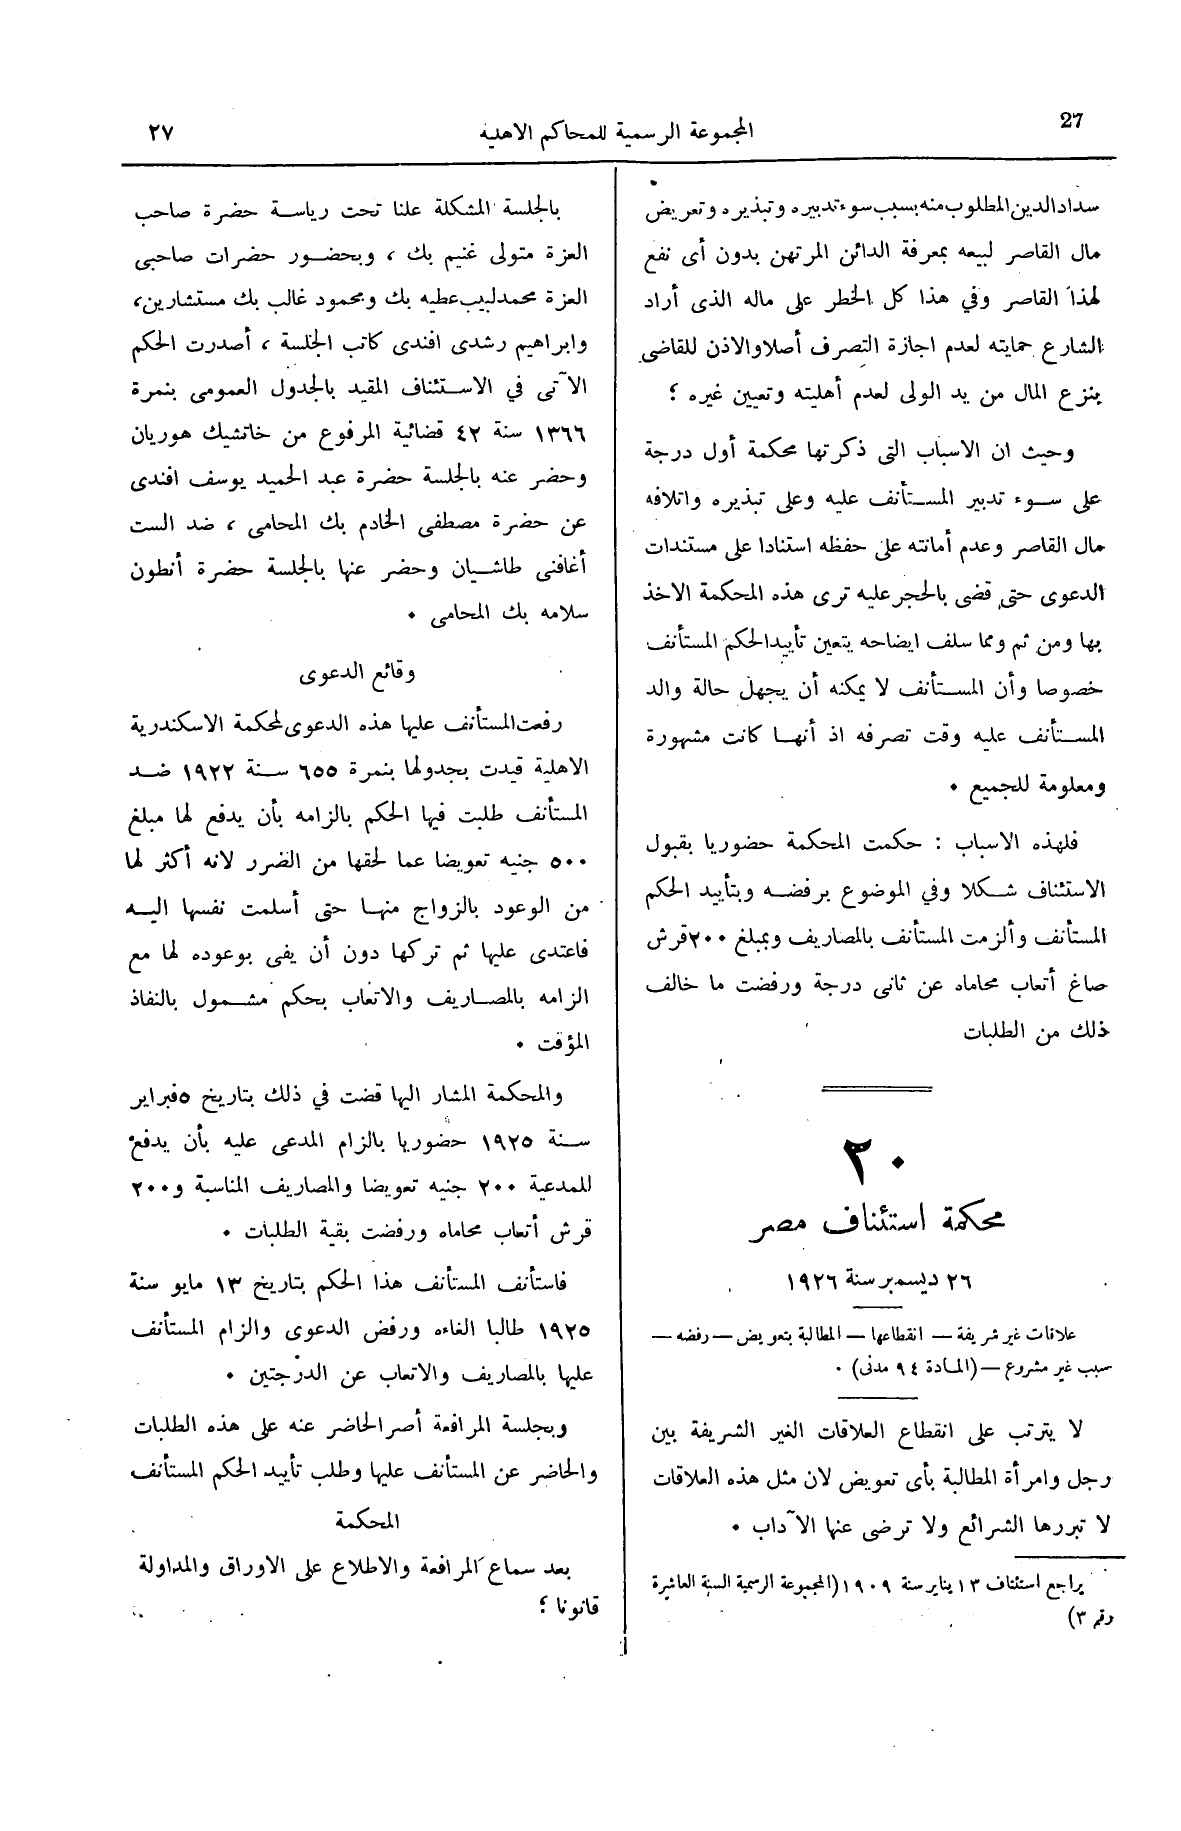 27
المجموعة الرسمية للمحاكم الاهلية
٢٧
سداد الدين المطلوب منه بسبب سوء تدبيره وتبذيره وتعريض
مال القاصر لبيعه بمعرفة الدائن المرتهن بدون أى نفع
لهذا القاصر وفي هذا كل الخطر على ماله الذى أراد
الشارع حمايته لعدم اجازة التصرف أصلا والاذن للقاضى
ينزع المال من يد الولى لعدم أهليته وتعيين غيره ؛
وحيث ان الاسباب التى ذكرتها محكمة أول درجة
على سوء تدبير المستأنف عليه وعلى تبذيره واتلافه
مال القاصر وعدم أمانته على حفظه استنادا على مستندات
الدعوى حتى قضى بالحجر عليه ترى هذه المحكمة الاخذ
بها ومن ثم ومما سلف ايضاحه يتعين تأييد الحكم المستأنف
خصوصا وأن المستأنف لا يمكنه أن يجهل حالة والد
المستأنف عليه وقت تصرفه اذ أنها كانت مشهورة
ومعلومة للجميع ٠
فلهذه الاسباب : حكمت المحكمة حضوريا بقبول
الاستئناف شكلا وفي الموضوع برفضه وبتأييد الحكم
المستأنف وألزمت المستأنف بالمصاريف وبمبلغ ٢٠٠ قرش
صاغ أتعاب محاماه عن ثانى درجة ورفضت ما خالف
ذلك من الطلبات
٢٠
محكمة استئناف مصر
٢٦ ديسمبر سنة ١٩٢٦
علاقات غير شريفة — انقطاعها — المطالبة بتعويض — رفضه —
سبب غير مشروع — (المادة ٩٤ مدنى) ٠
لا يترتب على انقطاع العلاقات الغير الشريفة بين
رجل وامرأة المطالبة بأى تعويض لان مثل هذه العلاقات
لا تبررها الشرائع ولا ترضى عنها الآداب ٠
يراجع استئناف ١٣ يناير سنة ١٩٠٩ (المجموعة الرسمية السنة العاشرة
رقم ٣)
بالجلسة المشكلة علنا تحت رياسة حضرة صاحب
العزة متولى غنيم بك ، وبحضور حضرات صاحبى
العزة محمد لبيب عطيه بك ومحمود غالب بك مستشارين،
وابراهيم رشدى افندى كاتب الجلسة ، أصدرت الحكم
الآتى في الاستئناف المقيد بالجدول العمومى بنمرة
١٣٦٦ سنة ٤٢ قضائية المرفوع من خاتشيك هوريان
وحضر عنه بالجلسة حضرة عبد الحميد يوسف افندى
عن حضرة مصطفى الخادم بك المحامى ، ضد الست
أغافنى طاشيان وحضر عنها بالجلسة حضرة أنطون
سلامه بك المحامى ٠
وقائع الدعوى
رفعت المستأنف عليها هذه الدعوى لمحكمة الاسكندرية
الاهلية قيدت بجدولها بنمرة ٦٥٥ سنة ١٩٢٢ ضد
المستأنف طلبت فيها الحكم بالزامه بأن يدفع لها مبلغ
٥٠٠ جنيه تعويضا عما لحقها من الضرر لانه أكثر لها
من الوعود بالزواج منها حتى أسلمت نفسها اليه
فاعتدى عليها ثم تركها دون أن يفى بوعوده لها مع
الزامه بالمصاريف والاتعاب بحكم مشمول بالنفاذ
المؤقت ٠
والمحكمة المشار اليها قضت في ذلك بتاريخ ٥ فبراير
سنة ١٩٢٥ حضوريا بالزام المدعى عليه بأن يدفع
للمدعية ٢٠٠ جنيه تعويضا والمصاريف المناسبة و٢٠٠
قرش أتعاب محاماه ورفضت بقية الطلبات ٠
فاستأنف المستأنف هذا الحكم بتاريخ ١٣ مايو سنة
١٩٢٥ طالبا الغاءه ورفض الدعوى والزام المستأنف
عليها بالمصاريف والاتعاب عن الدرجتين ٠
وبجلسة المرافعة أصر الحاضر عنه على هذه الطلبات
والحاضر عن المستأنف عليها وطلب تأييد الحكم المستأنف
المحكمة
بعد سماع المرافعة والاطلاع على الاوراق والمداولة
قانونا ؛